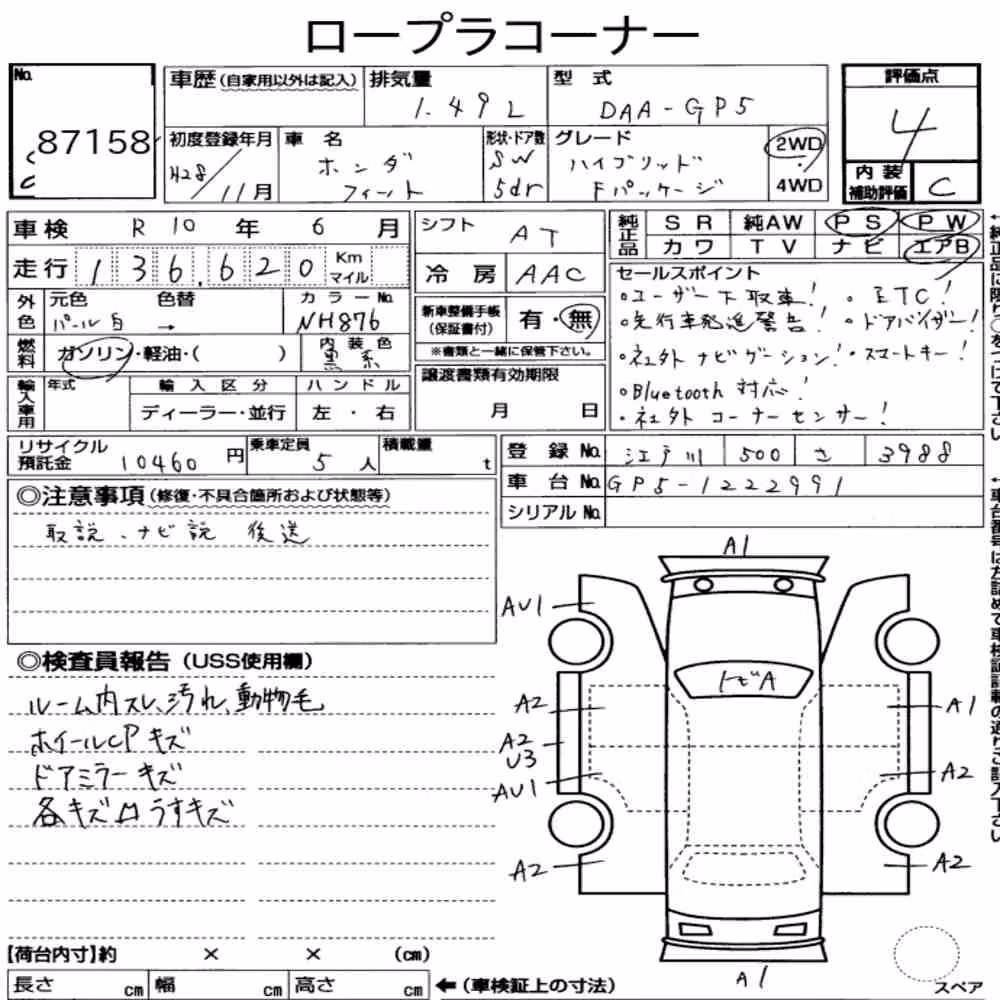 ロープラコーナー
No. 87158
車歴 (自家用以外は記入) 排気量 1.49L 型式 DAA-GP5
初度登録年月 H28/11月 車名 ホンダ フィット 形状・ドア数 SW 5dr グレード ハイブリッド Fパッケージ 2WD・4WD
評価点 4
内装補助評価 C
車検 R10年 6月
走行 136,620 Km マイル
シフト AT
冷房 AAC
純正品 SR 純AW PS PW
カワ TV ナビ エアB
外色 元色 パール白 → 色替 カラーNo. NH876
燃料 ガソリン・軽油・( ) 内装色 黒系
新車整備手帳 (保証書付) 有・無
※書類と一緒に保管下さい。
譲渡書類有効期限 月 日
セールスポイント
・ユーザー下取車! ・ETC!
・先行車発進警告! ・ドアバイザー!
・社外ナビゲーション! ・スマートキー!
・Bluetooth対応!
・社外コーナーセンサー!
輸入車用 年式 輸入区分 ハンドル
ディーラー・並行 左・右
リサイクル預託金 10460円 乗車定員 5人 積載量 t
登録No. 江戸川 500 さ 3988
車台No. GP5-1222991
シリアルNo.
◎注意事項 (修復・不具合箇所および状態等)
取説、ナビ説 後送
◎検査員報告 (USS使用欄)
ルーム内スレ、汚れ、動物毛
ホイールCPキズ
ドアミラーキズ
各キズ凹うすキズ
A1
AU1
トビA
A2
A1
A2
U3
A2
AU1
A2
A2
A1
スペア
【荷台内寸】約 × × (cm)
長さ cm 幅 cm 高さ cm ←(車検証上の寸法)